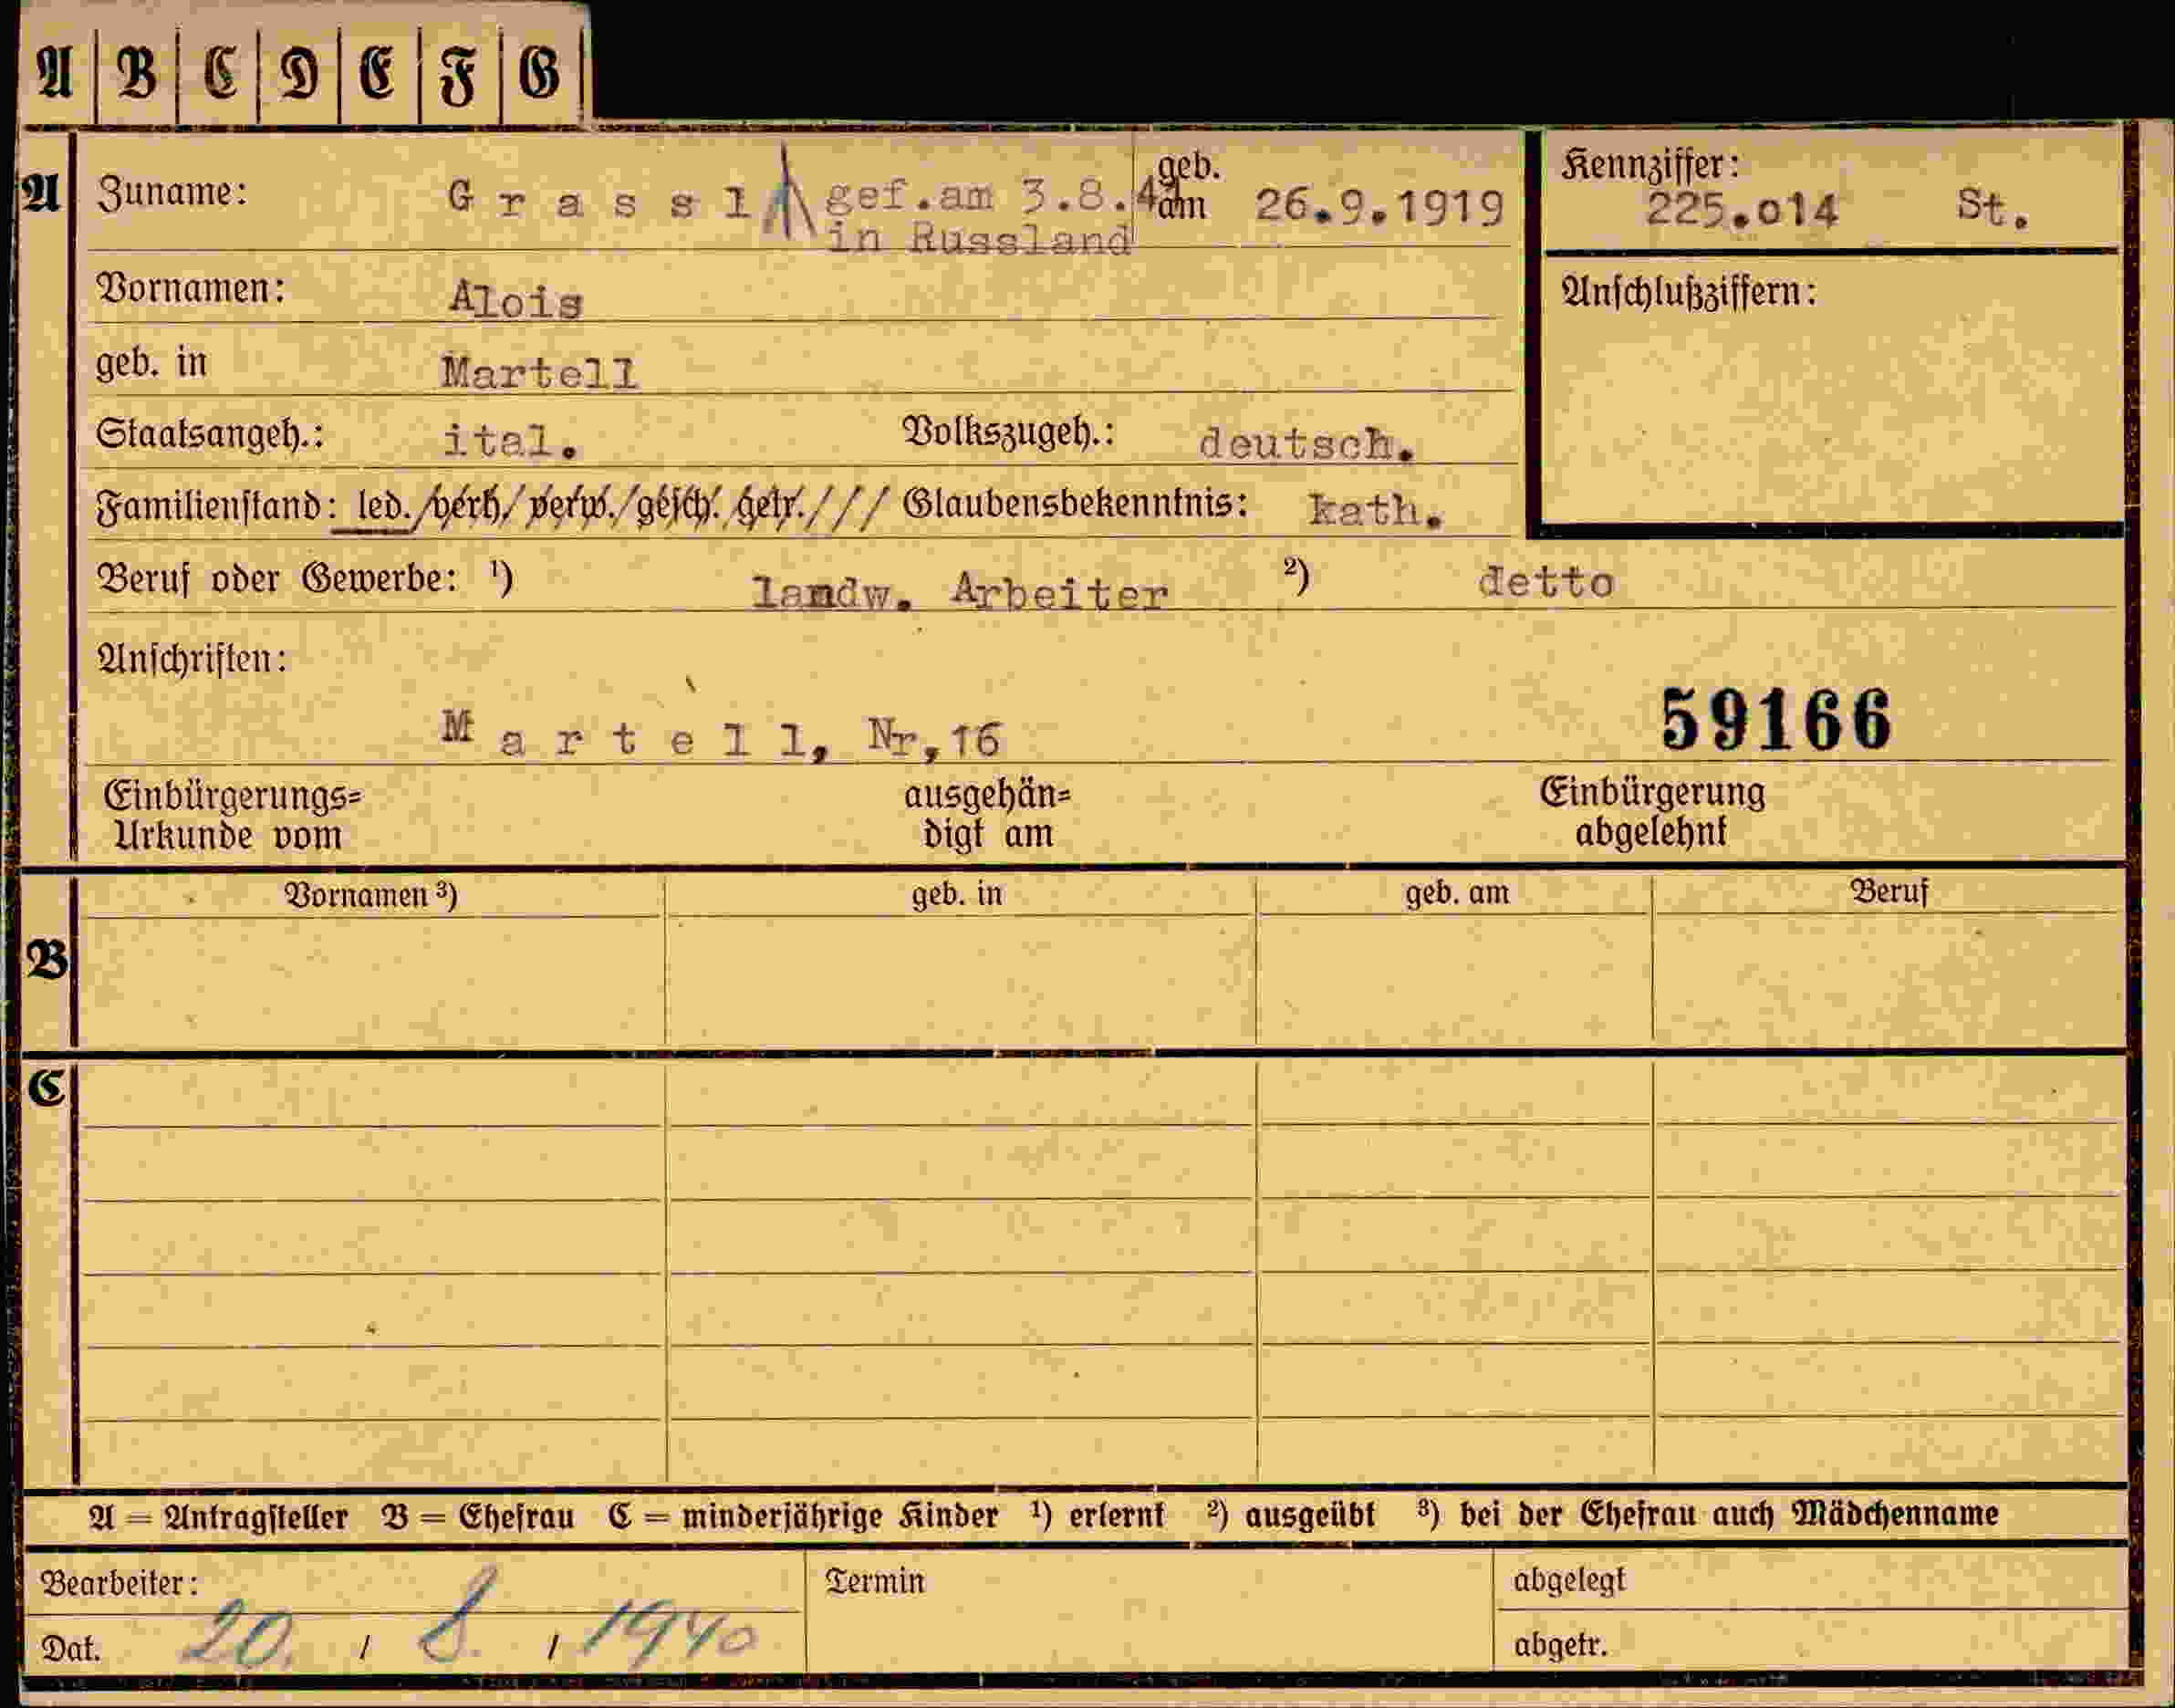 A B C D E F G
A Zuname: Grassl gef.am 3.8.4 geb. am 26.9.1919 Kennziffer: 225.014 St.
in Russland
Vornamen: Alois Anschlußziffern:
geb. in Martell
Staatsangeh.: ital. Volkszugeh.: deutsch.
Familienstand: led./verh/verw./gesch./getr./// Glaubensbekenntnis: kath.
Beruf oder Gewerbe: ¹) landw. Arbeiter ²) detto
Anschriften:
Martell, Nr,16 59166
Einbürgerungs= ausgehän= Einbürgerung
Urkunde vom digt am abgelehnt
B Vornamen ³) geb. in geb. am Beruf
C
A = Antragsteller B = Ehefrau C = minderjährige Kinder ¹) erlernt ²) ausgeübt ³) bei der Ehefrau auch Mädchenname
Bearbeiter: Termin abgelegt
Dat. 20. / 8. / 1940 abgetr.